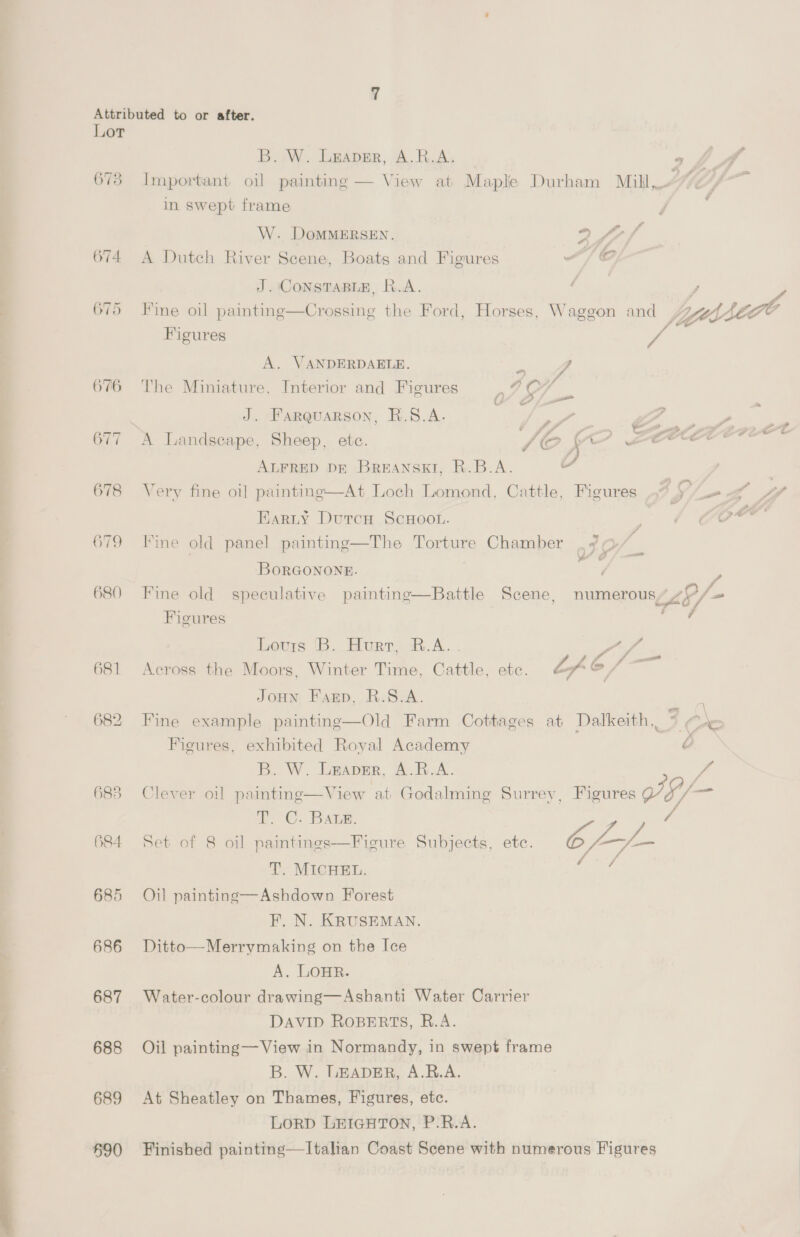 7
Attributed to or after.
LOT
B. W. LEADER, A.R.A.
673 Important oil painting — View at Maple Durham Mill,
in swept frame
W. DOMMERSEN.
674 A Dutch River Scene, Boats and Figures
J. CONSTABLE, R.A.
675 Fine oil painting—Crossing the Ford, Horses, Waggon and
Figures
A. VANDERDAELE.
676 The Miniature, Interior and Figures
J. FARQUARSON, R.S.A.
677 A Landscape, Sheep, etc.
ALFRED DE BREANSKI, R.B.A.
678 Very fine oil painting—At Loch Lomond, Cattle, Figures
EARLY DUTCH SCHOOL.
679 Fine old panel painting—The Torture Chamber
BORGONONE.
680 Fine old speculative painting—Battle Scene, numerous
Figures
LOUIS B. HURT, R.A.
681 Across the Moors, Winter Time, Cattle, etc.
JOHN FAED, R.S.A.
682 Fine example painting—Old Farm Cottages at Dalkeith,
Figures, exhibited Royal Academy
B. W. LEADER, A.R.A.
683 Clever oil painting—View at Godalming Surrey, Figures
T. C. BALE.
684 Set of 8 oil paintings—Figure Subjects, etc.
T. MICHEL.
685 Oil painting—Ashdown Forest
F. N. KRUSEMAN.
686 Ditto—Merrymaking on the Ice
A. LOHR.
687 Water-colour drawing—Ashanti Water Carrier
DAVID ROBERTS, R.A.
688 Oil painting—View in Normandy, in swept frame
B. W. LEADER, A.R.A.
689 At Sheatley on Thames, Figures, etc.
LORD LEIGHTON, P.R.A.
690 Finished painting—Italian Coast Scene with numerous Figures